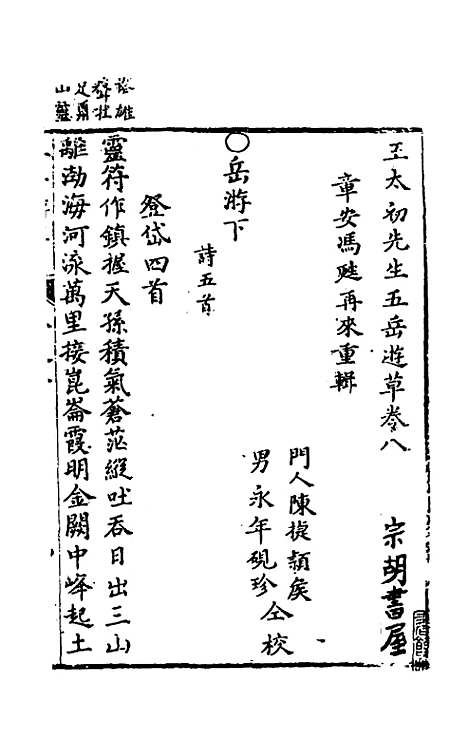 王太初先生五岳遊草卷八
宗胡書屋
章安馮甦再來重輯
門人陳挺穎矦
男永年硯珍仝校
岳游下
詩五首
登岱四首
靈符作鎮握天孫積氣蒼茫縱吐吞日出三山
離渤海河流萬里接崑崙霞明金闕中峰起土
雄
壯
足鼎
山靈